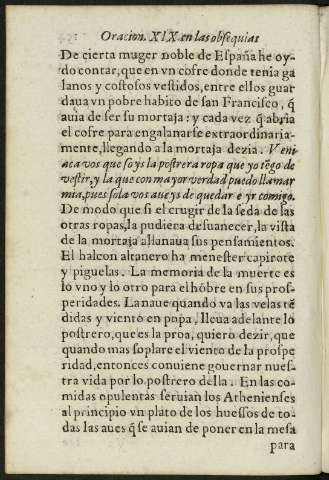 Oracion. XIX en las obsequias
De cierta muger noble de España he oy-
do contar, que en vn cofre donde tenia ga
lanos y costosos vestidos, entre ellos guar
daua vn pobre habito de san Francisco, q̃
auia de ser su mortaja: y cada vez q̃ abria
el cofre para engalanarse extraordinaria-
mente, llegando a la mortaja dezia. Veni
aca vos que soys la postrera ropa que yo tẽgo de
vestir, y la que con mayor verdad puedo llamar
mia, pues sola vos aueys de quedar e yr comigo.
De modo que si el crugir de la seda de las
otras ropas, la pudiera desuanecer, la vista
de la mortaja allanaua sus pensamientos.
El halcon altanero ha menester capirote
y piguelas. La memoria de la muerte es
lo vno y lo otro para el hõbre en sus pros-
peridades. La naue quando va las velas tẽ
didas y viento en popa, lleua adelante lo
postrero, que es la proa, quiero dezir, que
quando mas soplare el viento de la prospe
ridad, entonces conuiene gouernar nues-
tra vida por lo postrero della. En las co-
midas opulentas seruian los Athenienses
al principio vn plato de los huessos de to-
das las aues q̃ se auian de poner en la mesa
para